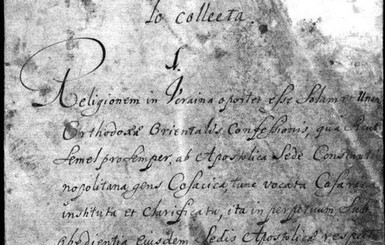 Io collecta.
1.
Religionem in Ucraina oportet esse Solam et Unam
Orthodoxæ Orientalis Confessionis, quâ sicut
Semel pro Semper, ab Apostolica Sede Constanti
nopolitana, gens Cosacica tunc vocata Cosarica
instituta et clarificata, ita in perpetuum sub
obedientia eiusdem Sedis Apostolicæ